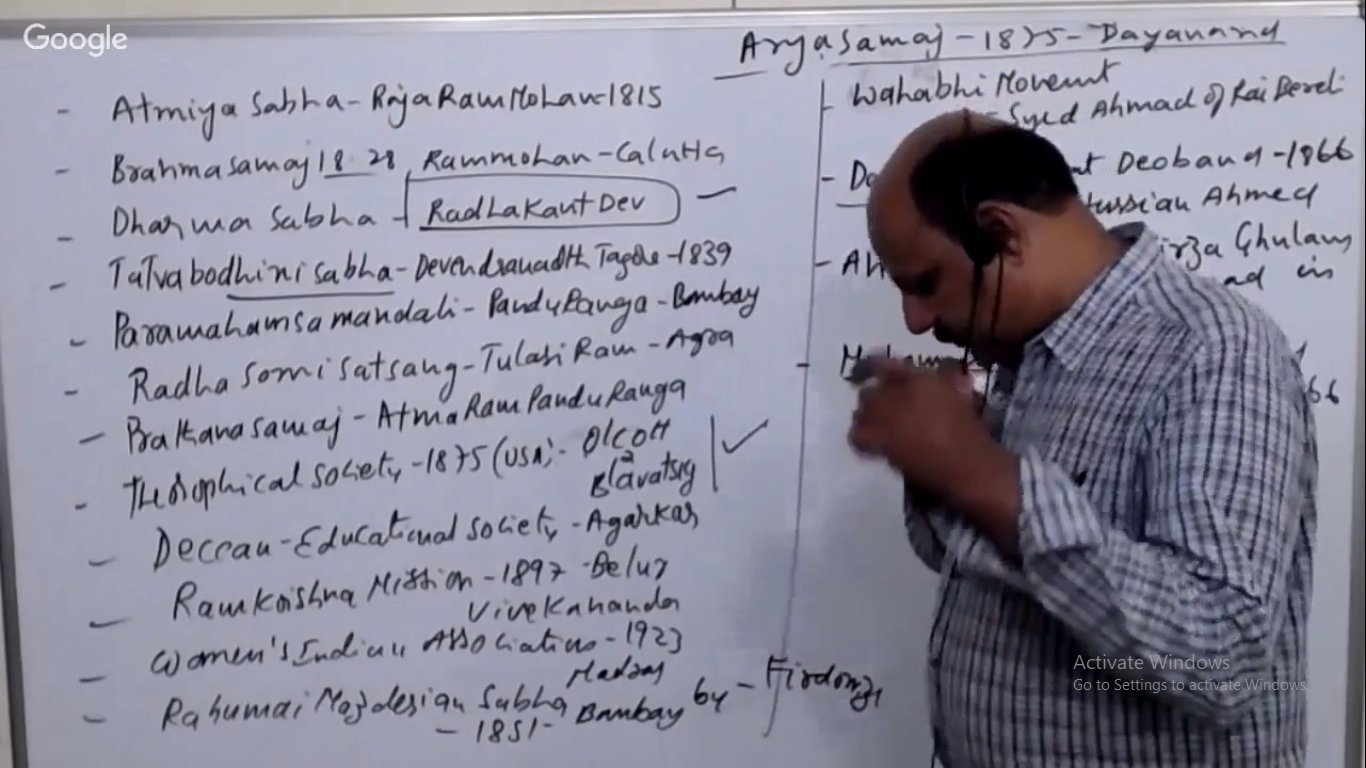 Google
Aryasamaj - 1875 - Dayanand
- Atmiya Sabha - Raja Ram Mohan - 1815
- Brahmasamaj 1828, Rammohan - Calcutta
- Dharma Sabha - Radhakant Dev -
- Tatvabodhini sabha - Devendranadth Tagore - 1839
- Paramahamsa mandali - Panduranga - Bombay
- Radha Somi Satsang - Tulasi Ram - Agra
- Prathana samaj - Atma Ram Pandu Ranga
- Theosophical society - 1875 (USA) - Olcott
Blavatsig
- Deccan - Educational society - Agarkar
- Ramkrishna Mission - 1897 - Belur
Vivekananda
- Women's Indian Association - 1923
Madras
- Rahumai Mazdesian Sabha
- 1851 - Bombay by - Firdonzi
- Wahabhi Movemt
- Syed Ahmad of Rai Bereli
- Deoband - 1866
Ahmed
- Ghulam
in
-
66
Activate Windows
Go to Settings to activate Windows.